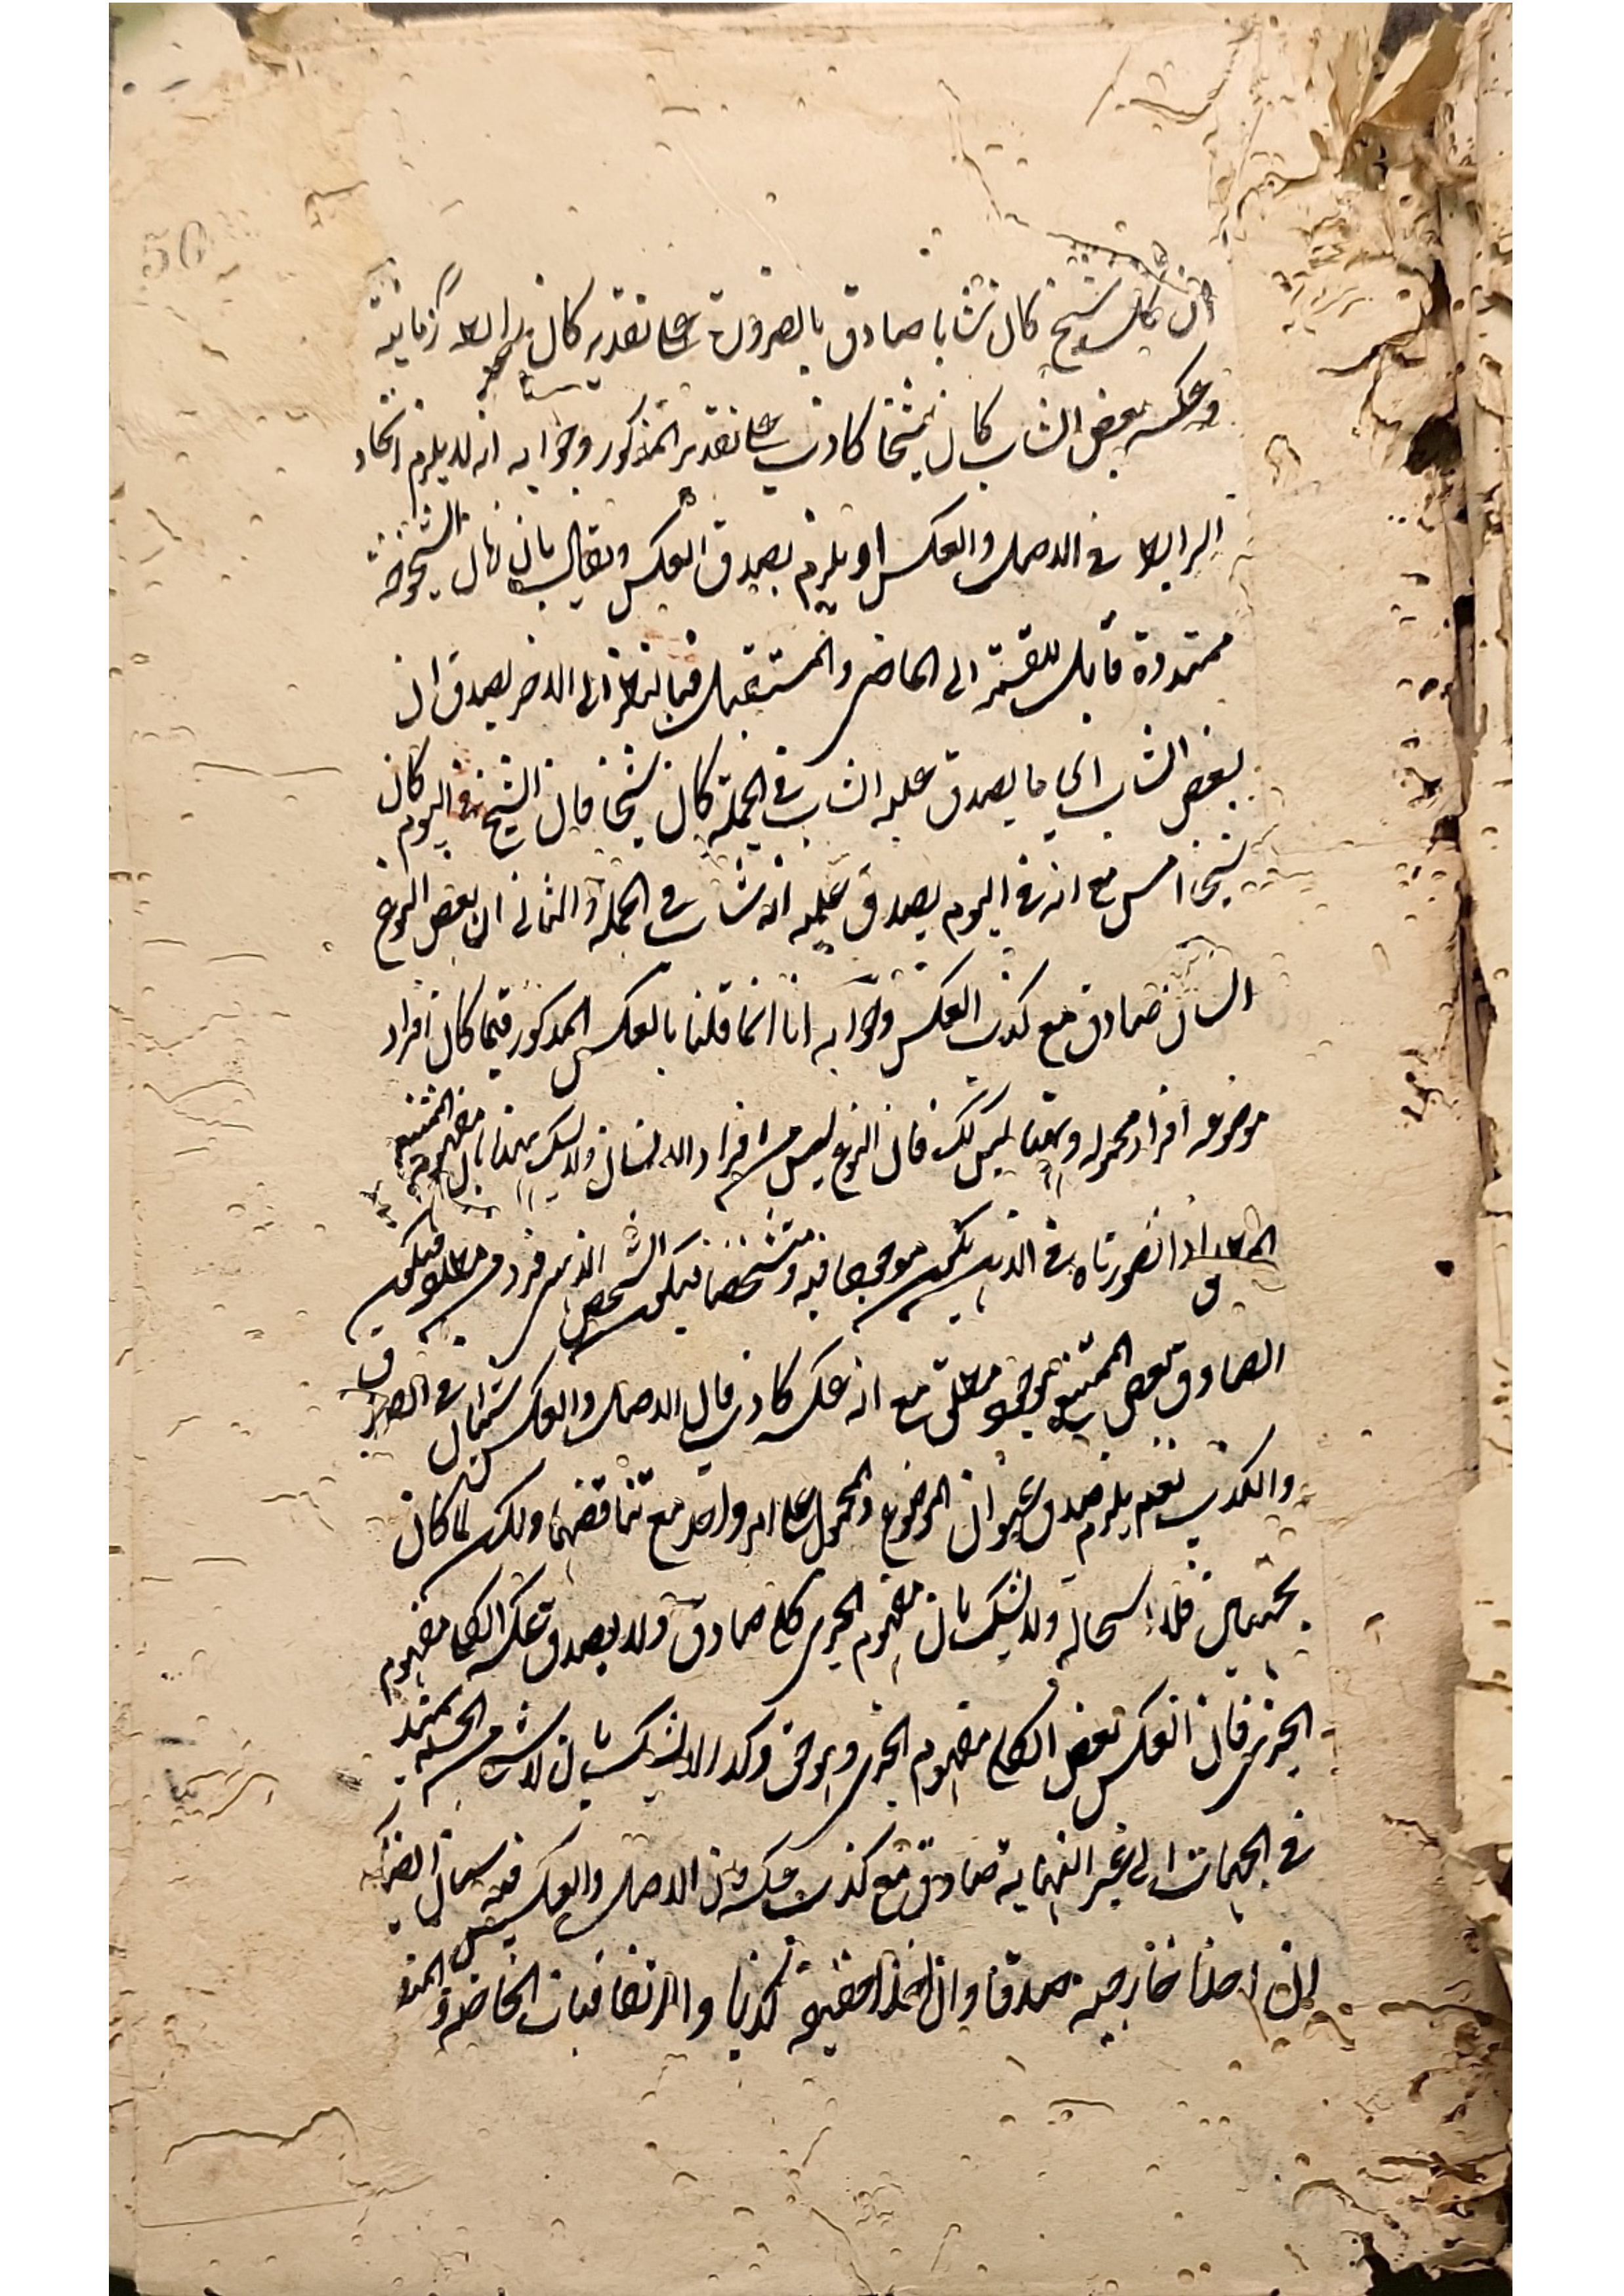 ان كل شيخ كان شابا صادق بالضرورة على تقدير كان رابطة زمانية
وعكسه بعض الشاب كان شيخا كاذب على تقدير المذكور وجوابه انه لا يلزم اتحاد
الرابط في الاصل والعكس او يلزم بصدق العكس ويقال بان زمان الشيخوخة
ممتدة قابل للقسمة الى الماضى والمستقبل فبالنظر الى الاخر يصدق ان
بعض الشاب اى ما يصدق عليه الشاب في الجملة كان شيخا فان الشيخ في اليوم كان
شيخا امس مع انه في اليوم يصدق عليه انه شاب في الجملة والثاني ان بعض النوع
انسان صادق مع كذب العكس وجوابه انا انما قلنا بالعكس المذكور فيما كان افراد
موضوعه افراد محموله وههنا ليس كك فان النوع ليس من افراد الانسان ولا يشك بهذا بان مفهوم الممتنع
المطلق اذا تصورناه في الذهن يكون موجودا فيه ومتشخصا فيكون الشخص الذى فرد منه مطلق فيكون
الصادق بعض الممتنع موجود مطلق مع ان عكسه كاذب فان الاصل والعكس سيان في الصدق
والكذب نعم يلزم صدق عنوان الموضوع والمحمول على امر واحد مع تناقضهما ولكن لما كان
بحسب فلا استحالة ولا يشك بان مفهوم الجزى كلي صادق ولا يصدق عكسه الكلى مفهوم
الجزى فان العكس بعض الكلي مفهوم الجزى وهو حق وكذا لا يشك بان لا شى من الجسم بممتد
في الجهات الى غير النهاية صادق مع كذب عكسه فان الاصل والعكس فيه سيان ايضا
ان اخذنا خارجية صدقا وان اخذا حقيقية كذبا والانعكاسات الخاصة
50